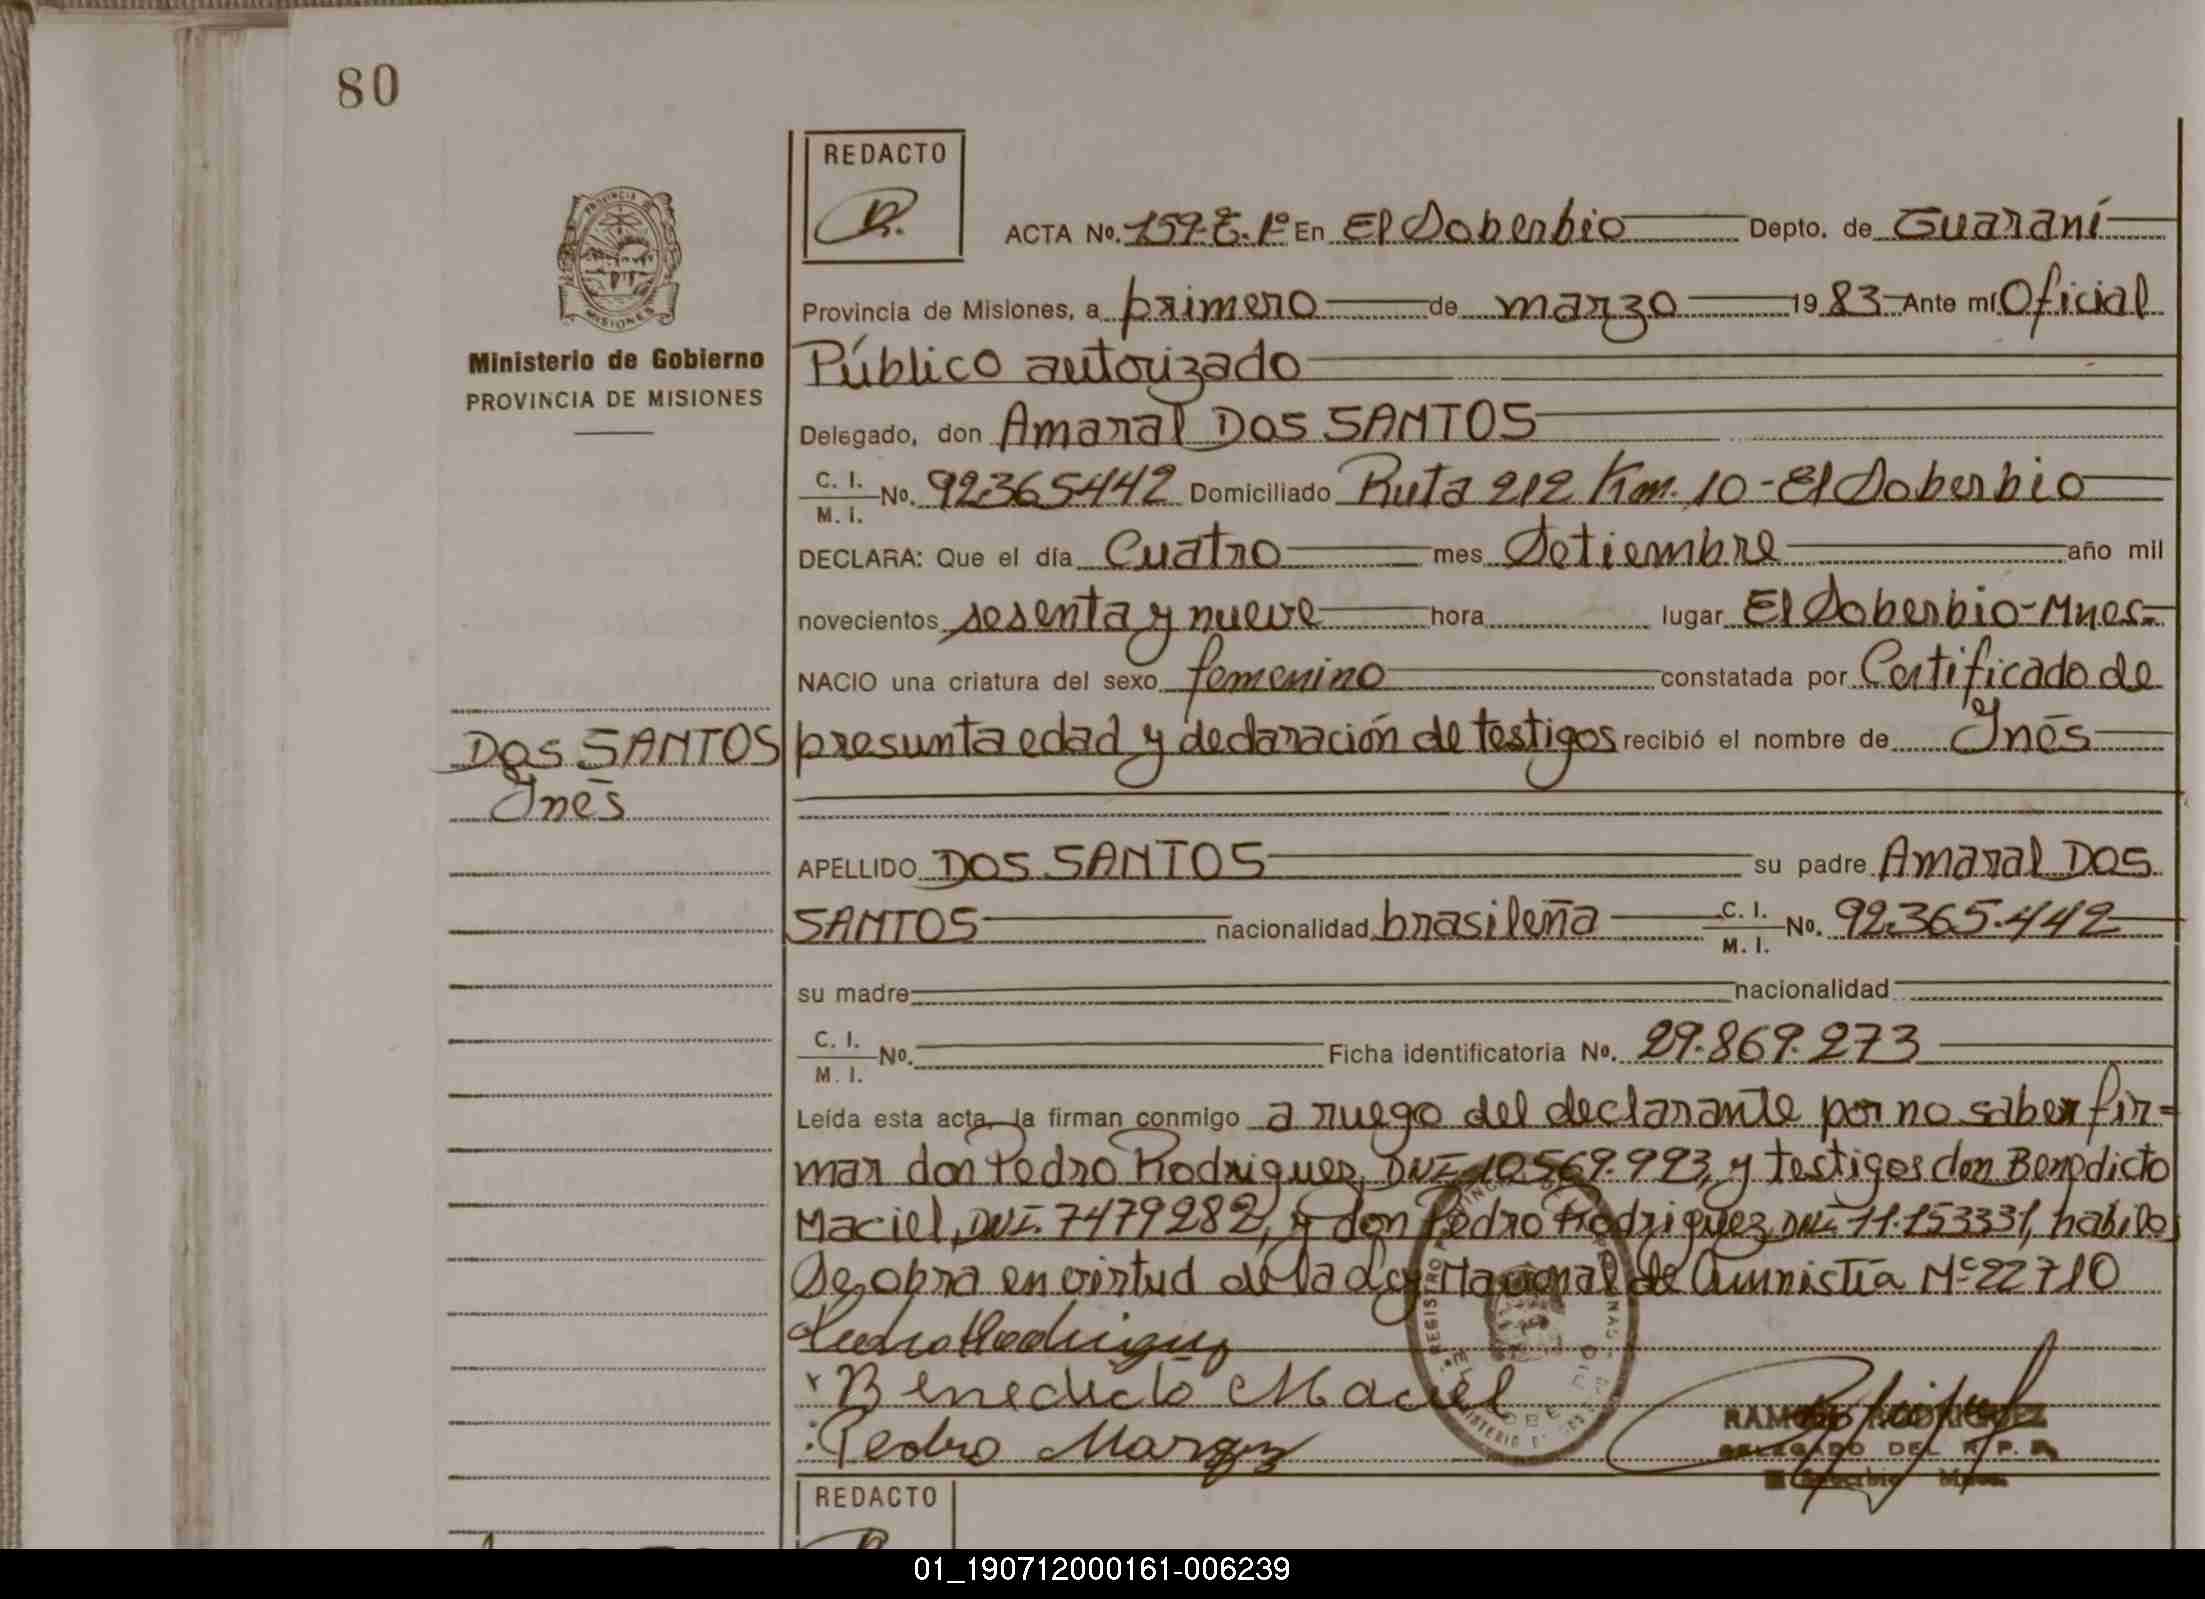 80
REDACTO
ACTA No. 159-E. 1º En El Soberbio Depto. de Guaraní
PROVINCIA
MISIONES
Provincia de Misiones, a primero de marzo 19 83 Ante mí Oficial
Ministerio de Gobierno
PROVINCIA DE MISIONES
Público autorizado
Delegado, don Amaral DOS SANTOS
C. I. / M. I. No. 92.365.442 Domiciliado Ruta 212 Km. 10 - El Soberbio
DECLARA: Que el día Cuatro mes Setiembre año mil
novecientos sesenta y nueve hora lugar El Soberbio-Mnes-
NACIO una criatura del sexo femenino constatada por Certificado de
presunta edad y declaración de testigos recibió el nombre de Inés
DOS SANTOS
Inés
APELLIDO DOS SANTOS su padre Amaral DOS
SANTOS nacionalidad brasileña C. I. / M. I. No. 92.365.442
su madre nacionalidad
C. I. / M. I. No. Ficha identificatoria No. 29.869.273
Leída esta acta, la firman conmigo a ruego del declarante por no saber fir=
mar don Pedro Rodriguez, DNI 10.569.993, y testigos don Benedicto
Maciel, DNI. 7479282, y don Pedro Rodriguez DNI 11.153331, habiles
Se obra en virtud de la Ley Nacional de Amnistía Nº 22710
Pedro Rodriguez
Benedicto Maciel
Pedro
RAMON RODRIGUEZ
DELEGADO DEL R. P. P.
Soberbio Mnes.
REDACTO
01_190712000161-006239